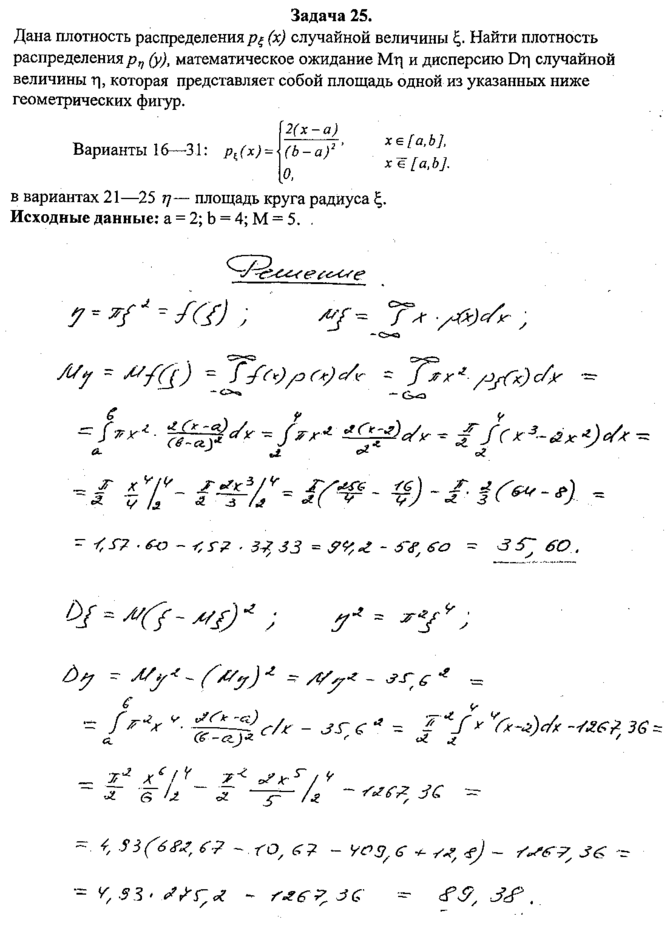 Задача 25.
Дана плотность распределения p_ξ (x) случайной величины ξ. Найти плотность
распределения p_η (y), математическое ожидание Mη и дисперсию Dη случайной
величины η, которая представляет собой площадь одной из указанных ниже
геометрических фигур.
Варианты 16—31: p_ξ(x) = { 2(x − a)/(b − a)², x ∈ [a,b],
0, x ∈̅ [a,b].
в вариантах 21—25 η — площадь круга радиуса ξ.
Исходные данные: a = 2; b = 4; M = 5. .
Решение.
η = πξ² = f(ξ) ; Mξ = ∫_{-∞}^{∞} x · p(x)dx ;
Mη = Mf(ξ) = ∫_{-∞}^{∞} f(x) p(x)dx = ∫_{-∞}^{∞} πx² · p_ξ(x)dx =
= ∫_a^в πx² · 2(x-a)/(в-a)² dx = ∫_2^4 πx² 2(x-2)/2² dx = π/2 ∫_2^4 (x³-2x²)dx =
= π/2 x⁴/4 |_2^4 - π/2 2x³/3 |_2^4 = π/2 (256/4 - 16/4) - π/2 · 2/3 (64 - 8) =
= 1,57 · 60 - 1,57 · 37,33 = 94,2 - 58,60 = 35,60.
Dξ = M(ξ - Mξ)² ; η² = π²ξ⁴ ;
Dη = Mη² - (Mη)² = Mη² - 35,6² =
= ∫_a^в π²x⁴ · 2(x-a)/(в-a)² dx - 35,6² = π²/2 ∫_2^4 x⁴(x-2)dx - 1267,36 =
= π²/2 · x⁶/6 |_2^4 - π²/2 2x⁵/5 |_2^4 - 1267,36 =
= 4,93(682,67 - 10,67 - 409,6 + 12,8) - 1267,36 =
= 4,93 · 275,2 - 1267,36 = 89,38.